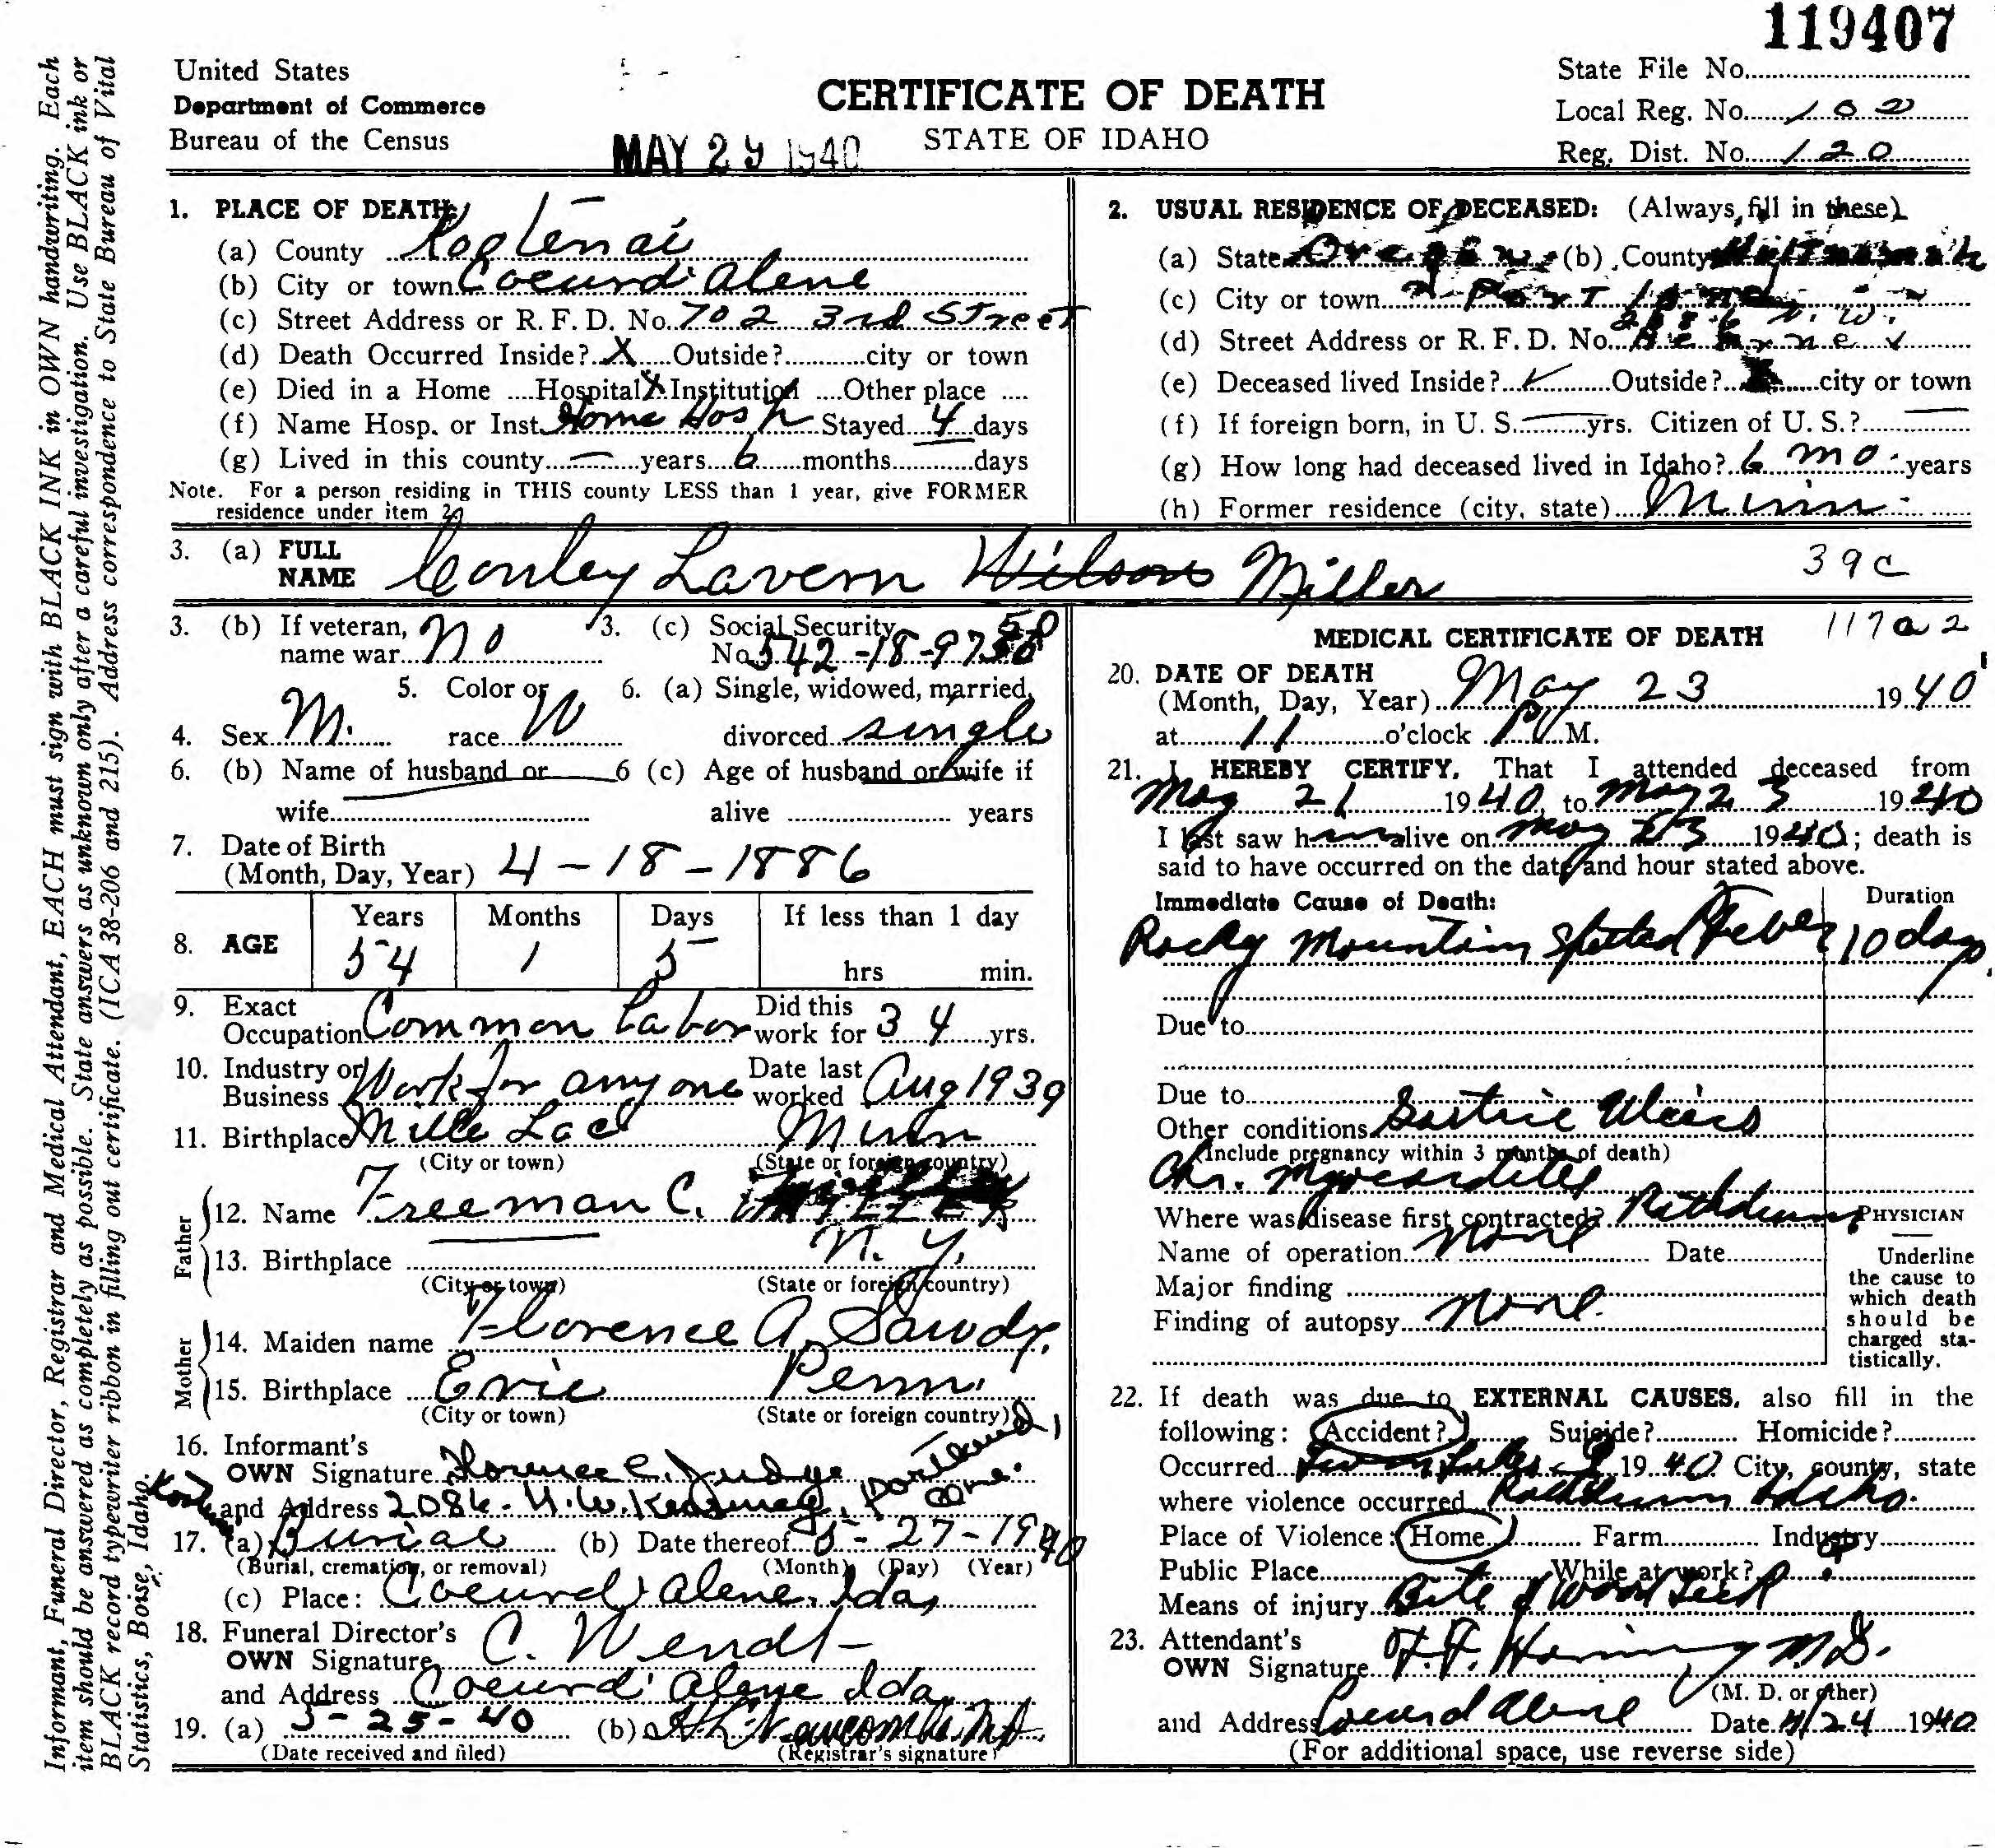 119407
United States
Department of Commerce
Bureau of the Census
MAY 29 1940
CERTIFICATE OF DEATH
STATE OF IDAHO
State File No.
Local Reg. No. 102
Reg. Dist. No. 120
Informant, Funeral Director, Registrar and Medical Attendant, EACH must sign with BLACK INK in OWN handwriting. Each
item should be answered as completely as possible. State answers as unknown only after a careful investigation. Use BLACK ink or
BLACK record typewriter ribbon in filling out certificate. (ICA 38-206 and 215). Address correspondence to State Bureau of Vital
Statistics, Boise, Idaho.
1. PLACE OF DEATH:
(a) County Kootenai
(b) City or town Coeur d'Alene
(c) Street Address or R. F. D. No. 702 3rd Street
(d) Death Occurred Inside? X Outside? city or town
(e) Died in a Home Hospital X Institution Other place
(f) Name Hosp. or Inst. Home Hosp Stayed 4 days
(g) Lived in this county — years 6 months days
Note. For a person residing in THIS county LESS than 1 year, give FORMER
residence under item 2.
2. USUAL RESIDENCE OF DECEASED: (Always fill in these)
(a) State Oregon (b) County Multnomah
(c) City or town Portland
(d) Street Address or R. F. D. No. 2086 N.W.
(e) Deceased lived Inside? ✓ Outside? city or town
(f) If foreign born, in U. S. — yrs. Citizen of U. S.? —
(g) How long had deceased lived in Idaho? 6 mo. years
(h) Former residence (city, state) Minn.
3. (a) FULL NAME Conley Lavern Wilson Miller
39c
3. (b) If veteran, name war No
3. (c) Social Security No. 542-18-97 50
4. Sex M. 5. Color or race W 6. (a) Single, widowed, married, divorced single
6. (b) Name of husband or wife 6 (c) Age of husband or wife if alive years
7. Date of Birth
(Month, Day, Year) 4-18-1886
8. AGE Years 54 Months 1 Days 5 If less than 1 day hrs min.
9. Exact Occupation Common Labor Did this work for 34 yrs.
10. Industry or Business Work for anyone Date last worked Aug 1939
11. Birthplace Mille Lac Minn
(City or town) (State or foreign country)
Father
12. Name Freeman C.
13. Birthplace N. Y.
(City or town) (State or foreign country)
Mother
14. Maiden name Florence A. Sawdy
15. Birthplace Erie Penn.
(City or town) (State or foreign country)
16. Informant's
OWN Signature Florence C. Judge
and Address 2086 - N.W. Kearney, Portland, Ore.
17. (a) Burial (b) Date thereof 5-27-1940
(Burial, cremation, or removal) (Month) (Day) (Year)
(c) Place: Coeur d'Alene, Ida,
18. Funeral Director's
OWN Signature C. Wendt
and Address Coeur d'Alene Ida
19. (a) 5-25-40 (b) Newcombe MD.
(Date received and filed) (Registrar's signature)
MEDICAL CERTIFICATE OF DEATH
117a2
20. DATE OF DEATH
(Month, Day, Year) May 23 1940
at 11 o'clock P M.
21. I HEREBY CERTIFY, That I attended deceased from
May 21 1940, to May 23 1940
I last saw him alive on May 23 1940; death is
said to have occurred on the date and hour stated above.
Immediate Cause of Death: Duration
Rocky Mountain Spotted Fever 10 days
Due to
Due to
Other conditions Gastric Ulcers
(Include pregnancy within 3 months of death)
Chr. Myocarditis
Where was disease first contracted? Rathdrum
Name of operation None Date
Major finding
Finding of autopsy None
PHYSICIAN
Underline
the cause to
which death
should be
charged sta-
tistically.
22. If death was due to EXTERNAL CAUSES, also fill in the
following: Accident? Suicide? Homicide?
Occurred Twin Lakes 1940 City, county, state
where violence occurred Rathdrum Idaho.
Place of Violence: Home Farm Industry
Public Place While at work? ?
Means of injury Bite of Wood Tick
23. Attendant's
OWN Signature M.D.
(M. D. or other)
and Address Coeur d Alene Date 4/24 1940
(For additional space, use reverse side)